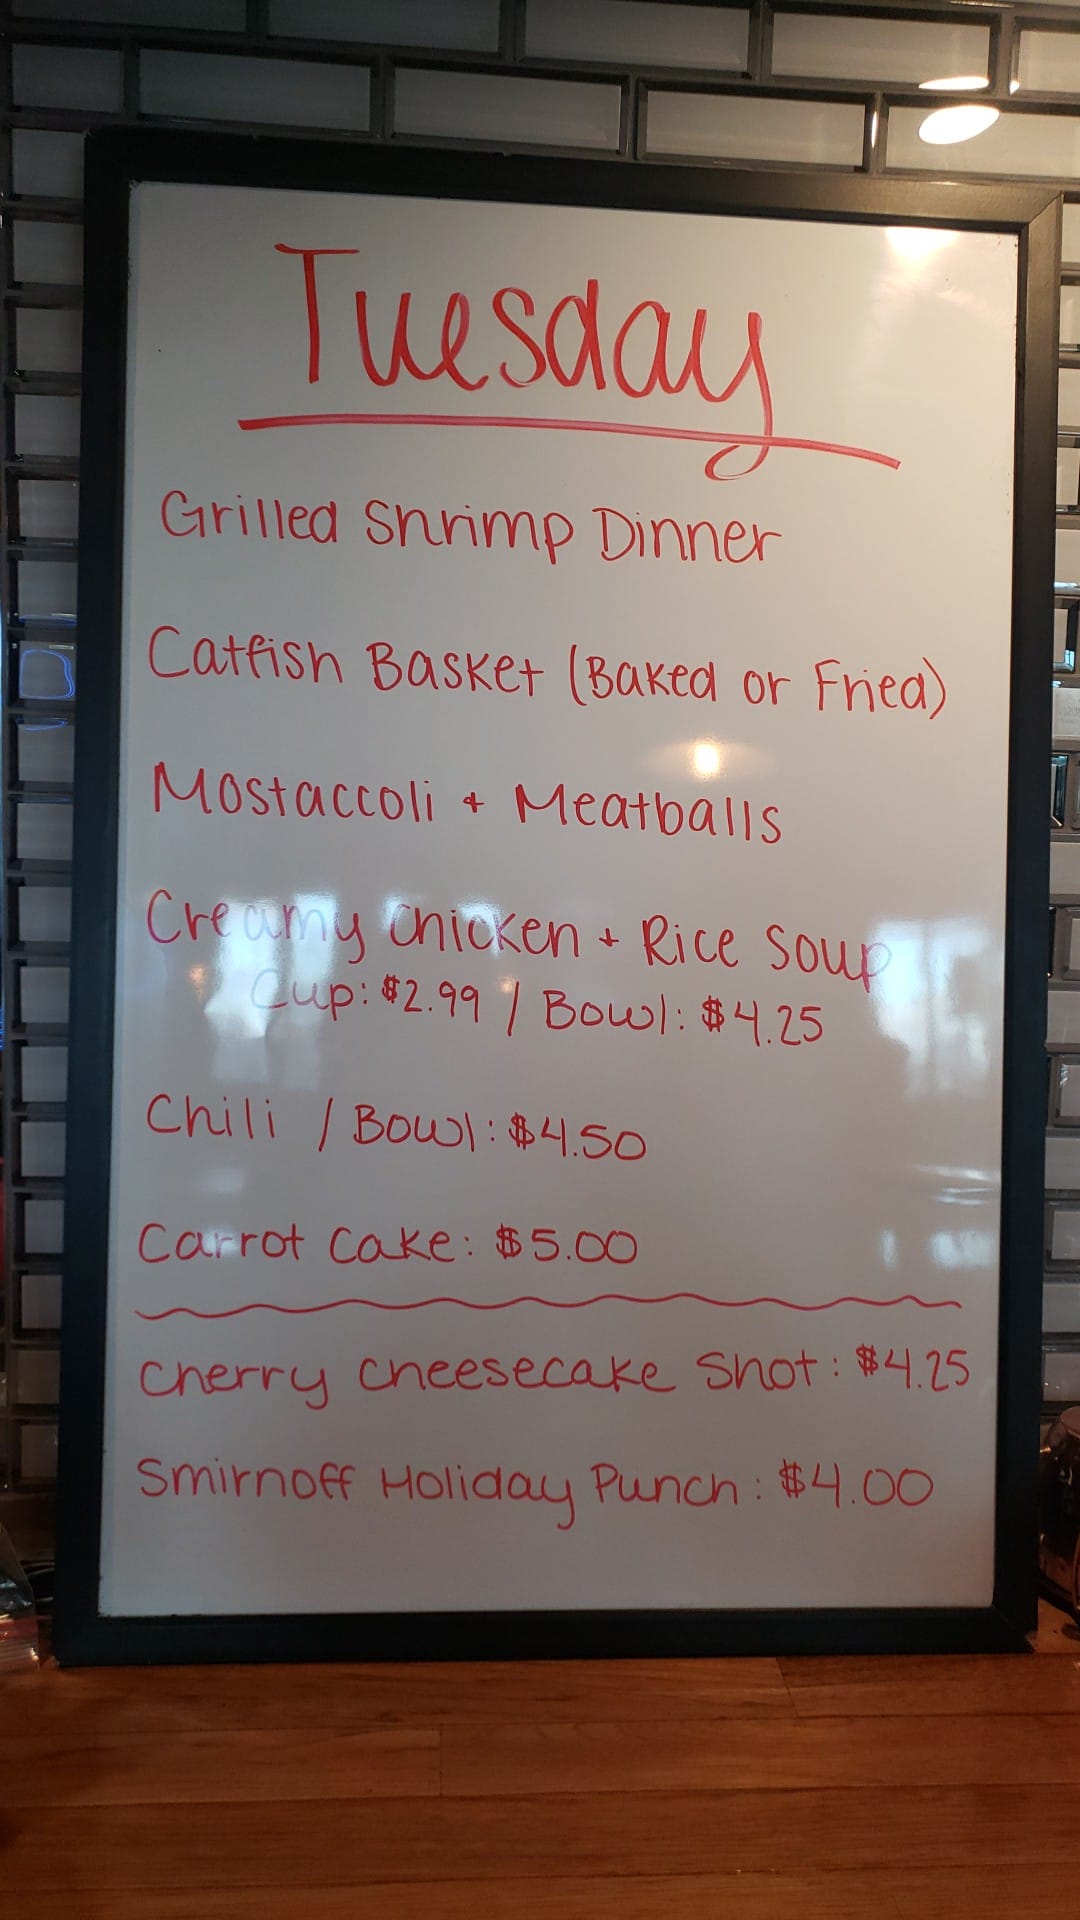 Tuesday
Grilled Shrimp Dinner
Catfish Basket (Baked or Fried)
Mostaccoli + Meatballs
Creamy Chicken + Rice Soup
Cup: $2.99 / Bowl: $4.25
Chili / Bowl: $4.50
Carrot Cake: $5.00
Cherry Cheesecake Shot: $4.25
Smirnoff Holiday Punch: $4.00